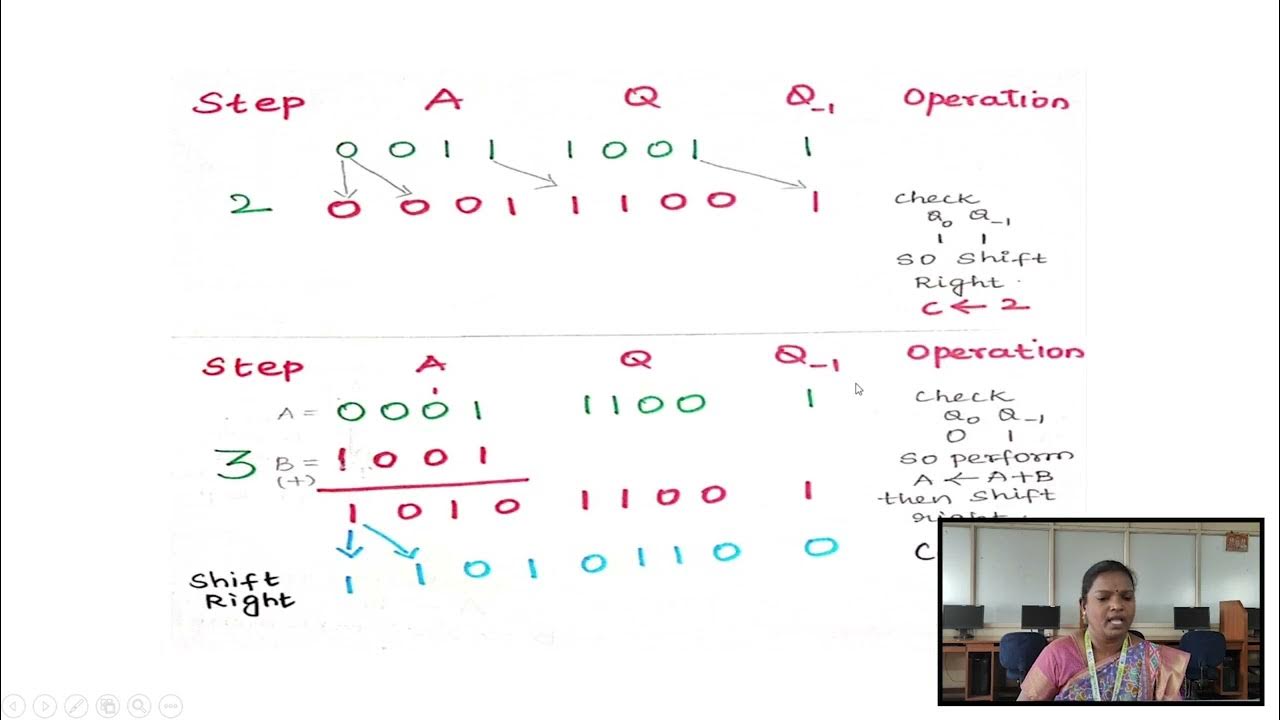 Step A Q Q-1 Operation
0 0 1 1 1 0 0 1 1
2 0 0 0 1 1 1 0 0 1
check
Q0 Q-1
1 1
so shift
Right.
C ← 2
Step A Q Q-1 Operation
1
A = 0 0 0 1 1 1 0 0 1
check
Q0 Q-1
0 1
3 B = 1 0 0 1
(+)
so perform
A ← A+B
1 0 1 0 1 1 0 0 1
then shift
right.
Shift Right
1 1 0 1 0 1 1 0 0
C